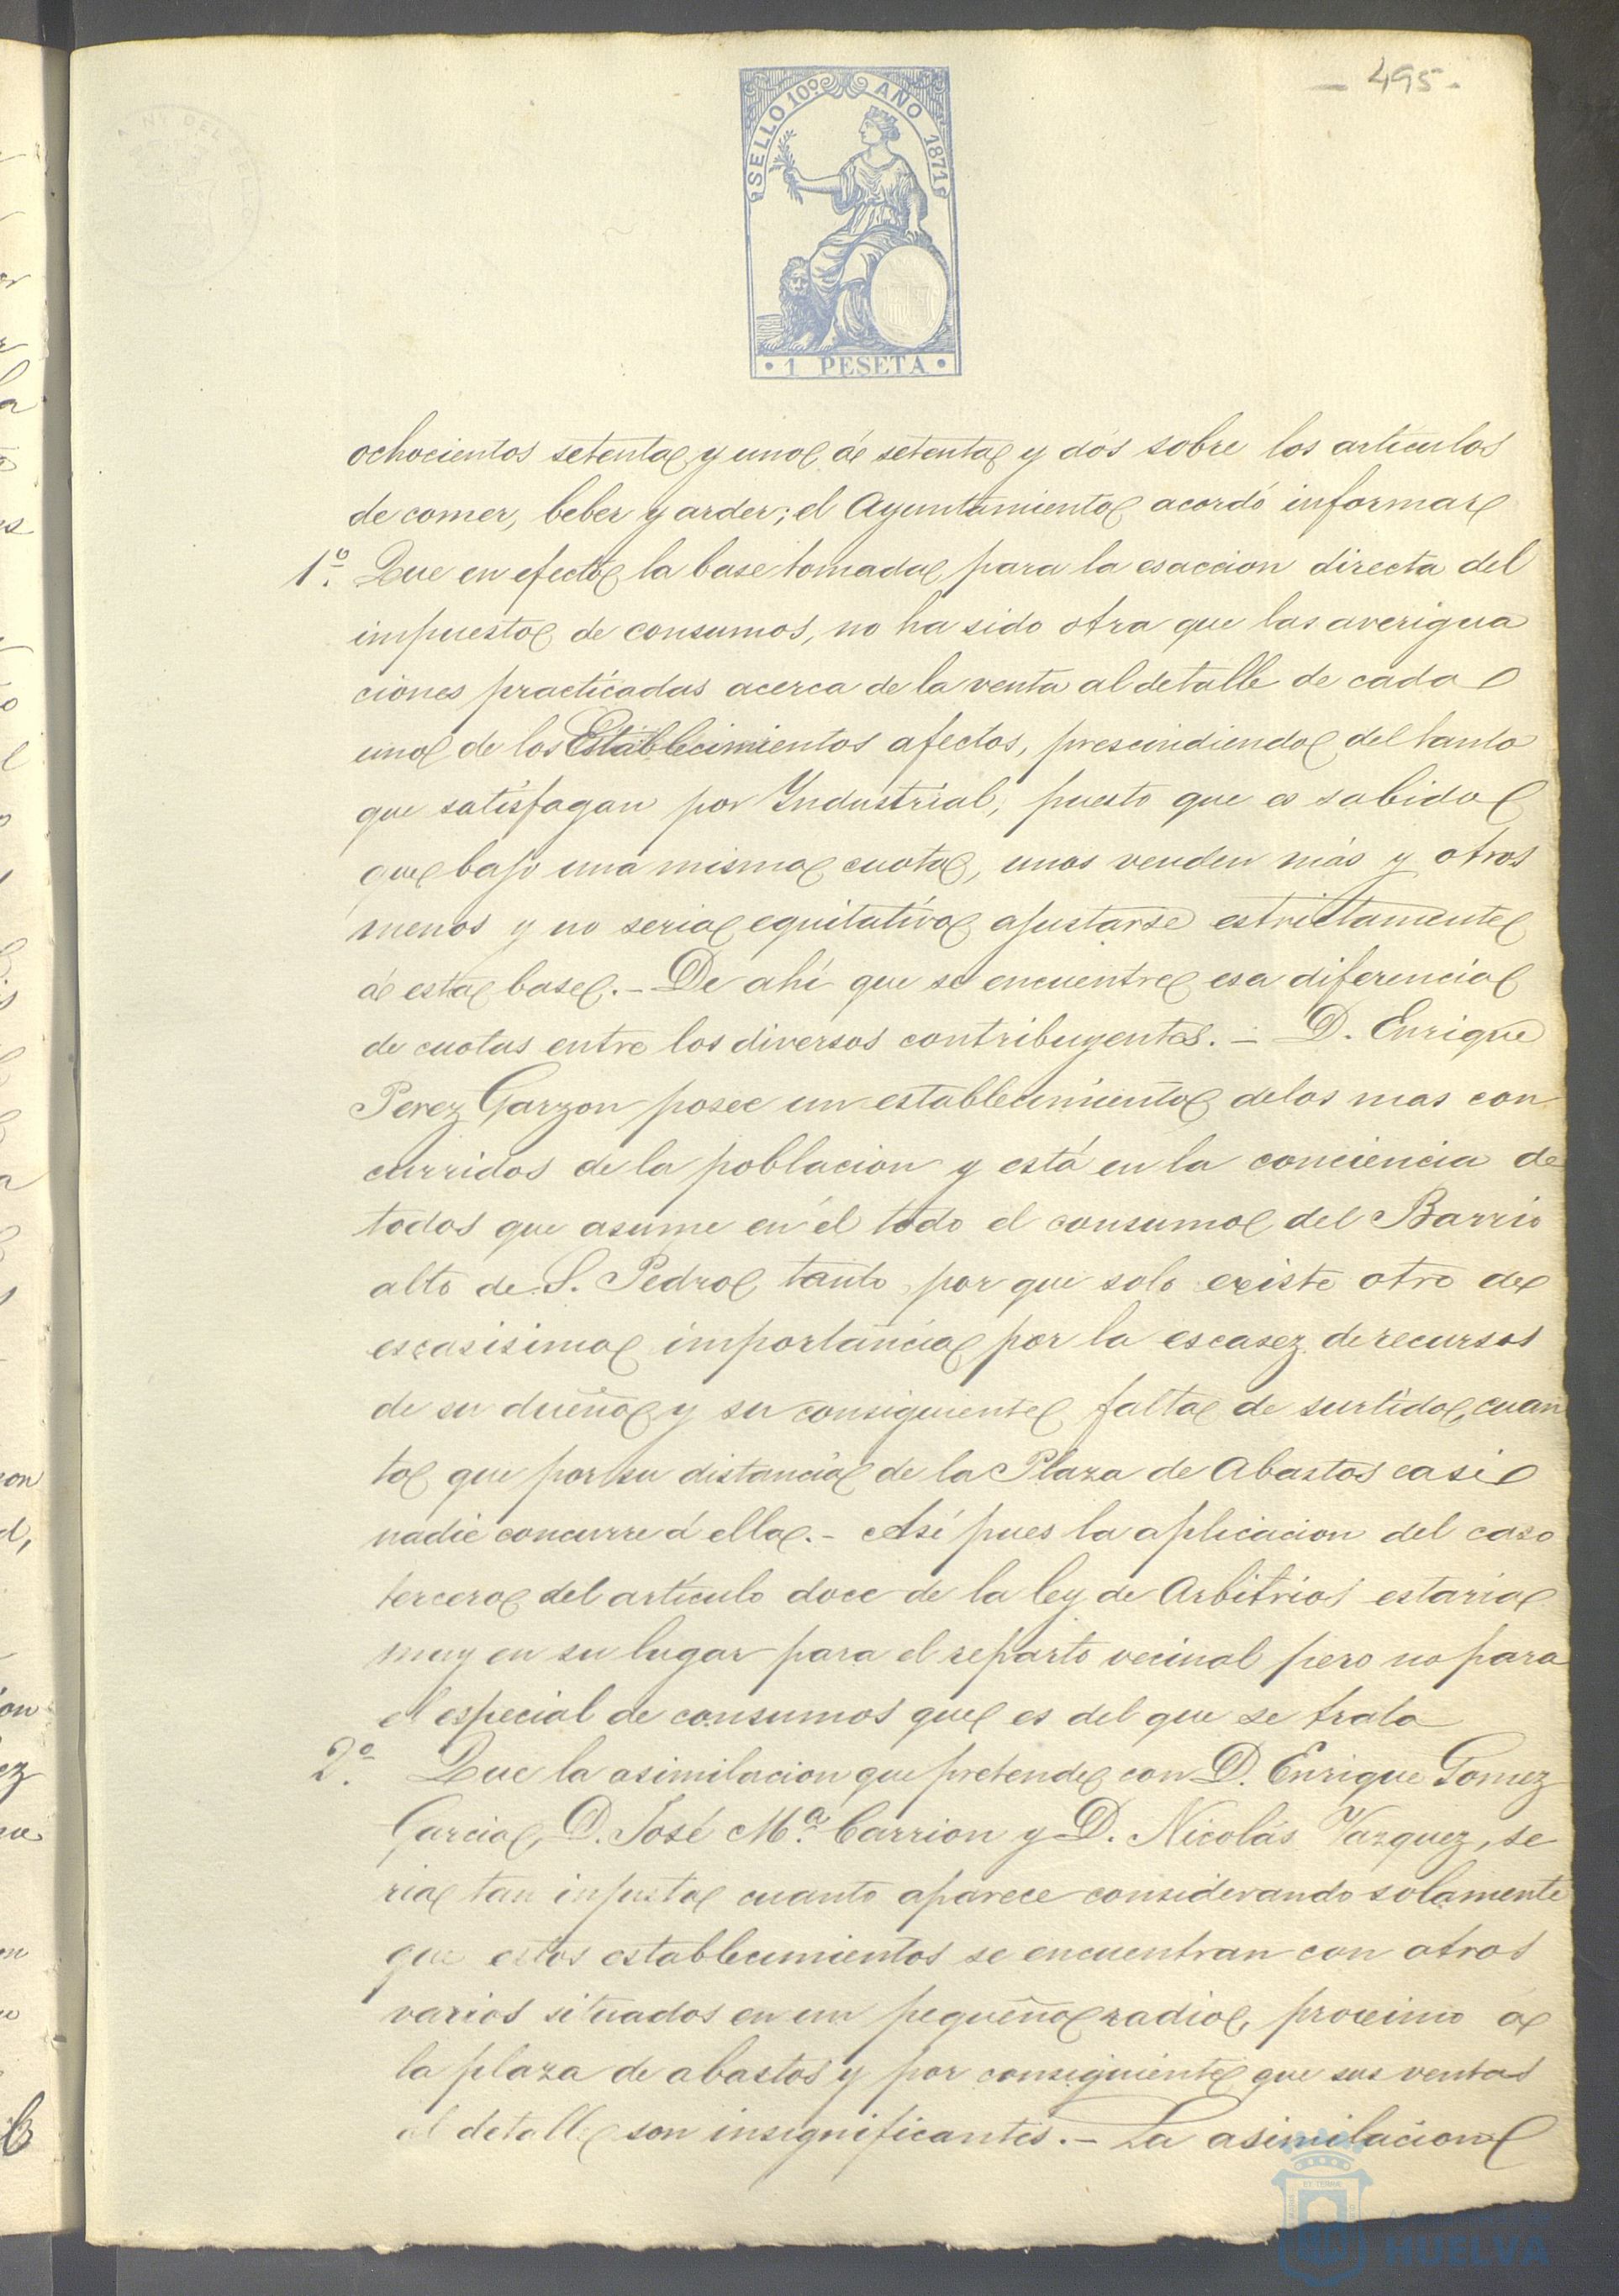 - 495 -
SELLO 10º AÑO 1871
· 1 PESETA ·
ochocientos setenta y uno á setenta y dós sobre los articulos
de comer, beber y arder; el Ayuntamiento acordó informar
1º. Que en efecto la base tomada para la esaccion directa del
impuesto de consumos, no ha sido otra que las averigua
ciones practicadas acerca de la venta al detalle de cada
uno de los Establecimientos afectos, prescindiendo del tanto
que satisfagan por Industrial, puesto que es sabido
que bajo una misma cuota, unos venden más y otros
menos y no seria equitativo ajustarse estrictamente
á esta base. - De ahí que se encuentre esa diferencia
de cuotas entre los diversos contribuyentes. - D. Enrique
Perez Garzon posee un establecimiento de los mas con
curridos de la poblacion y está en la conciencia de
todos que asume en él todo el consumo del Barrio
alto de S. Pedro tanto por que solo existe otro de
escasisima importancia por la escasez de recursos
de su dueño y su consiguiente falta de surtido, cuan
to que por su distancia de la Plaza de Abastos casi
nadie concurre á ella. - Así pues la aplicacion del caso
tercero del artículo doce de la ley de Arbitrios estaria
muy en su lugar para el reparto vecinal pero no para
el especial de consumos que es del que se trata
2º. Que la asimilacion que pretende con D. Enrique Gomez
Garcia, D. José Mª. Carrion y D. Nicolás Vazquez, se
ria tan injusta cuanto aparece considerando solamente
que estos establecimientos se encuentran con otros
varios situados en un pequeño radio, proximo á
la plaza de abastos y por consiguiente que sus ventas
al detalle son insignificantes. - La asimilacion
HUELVA